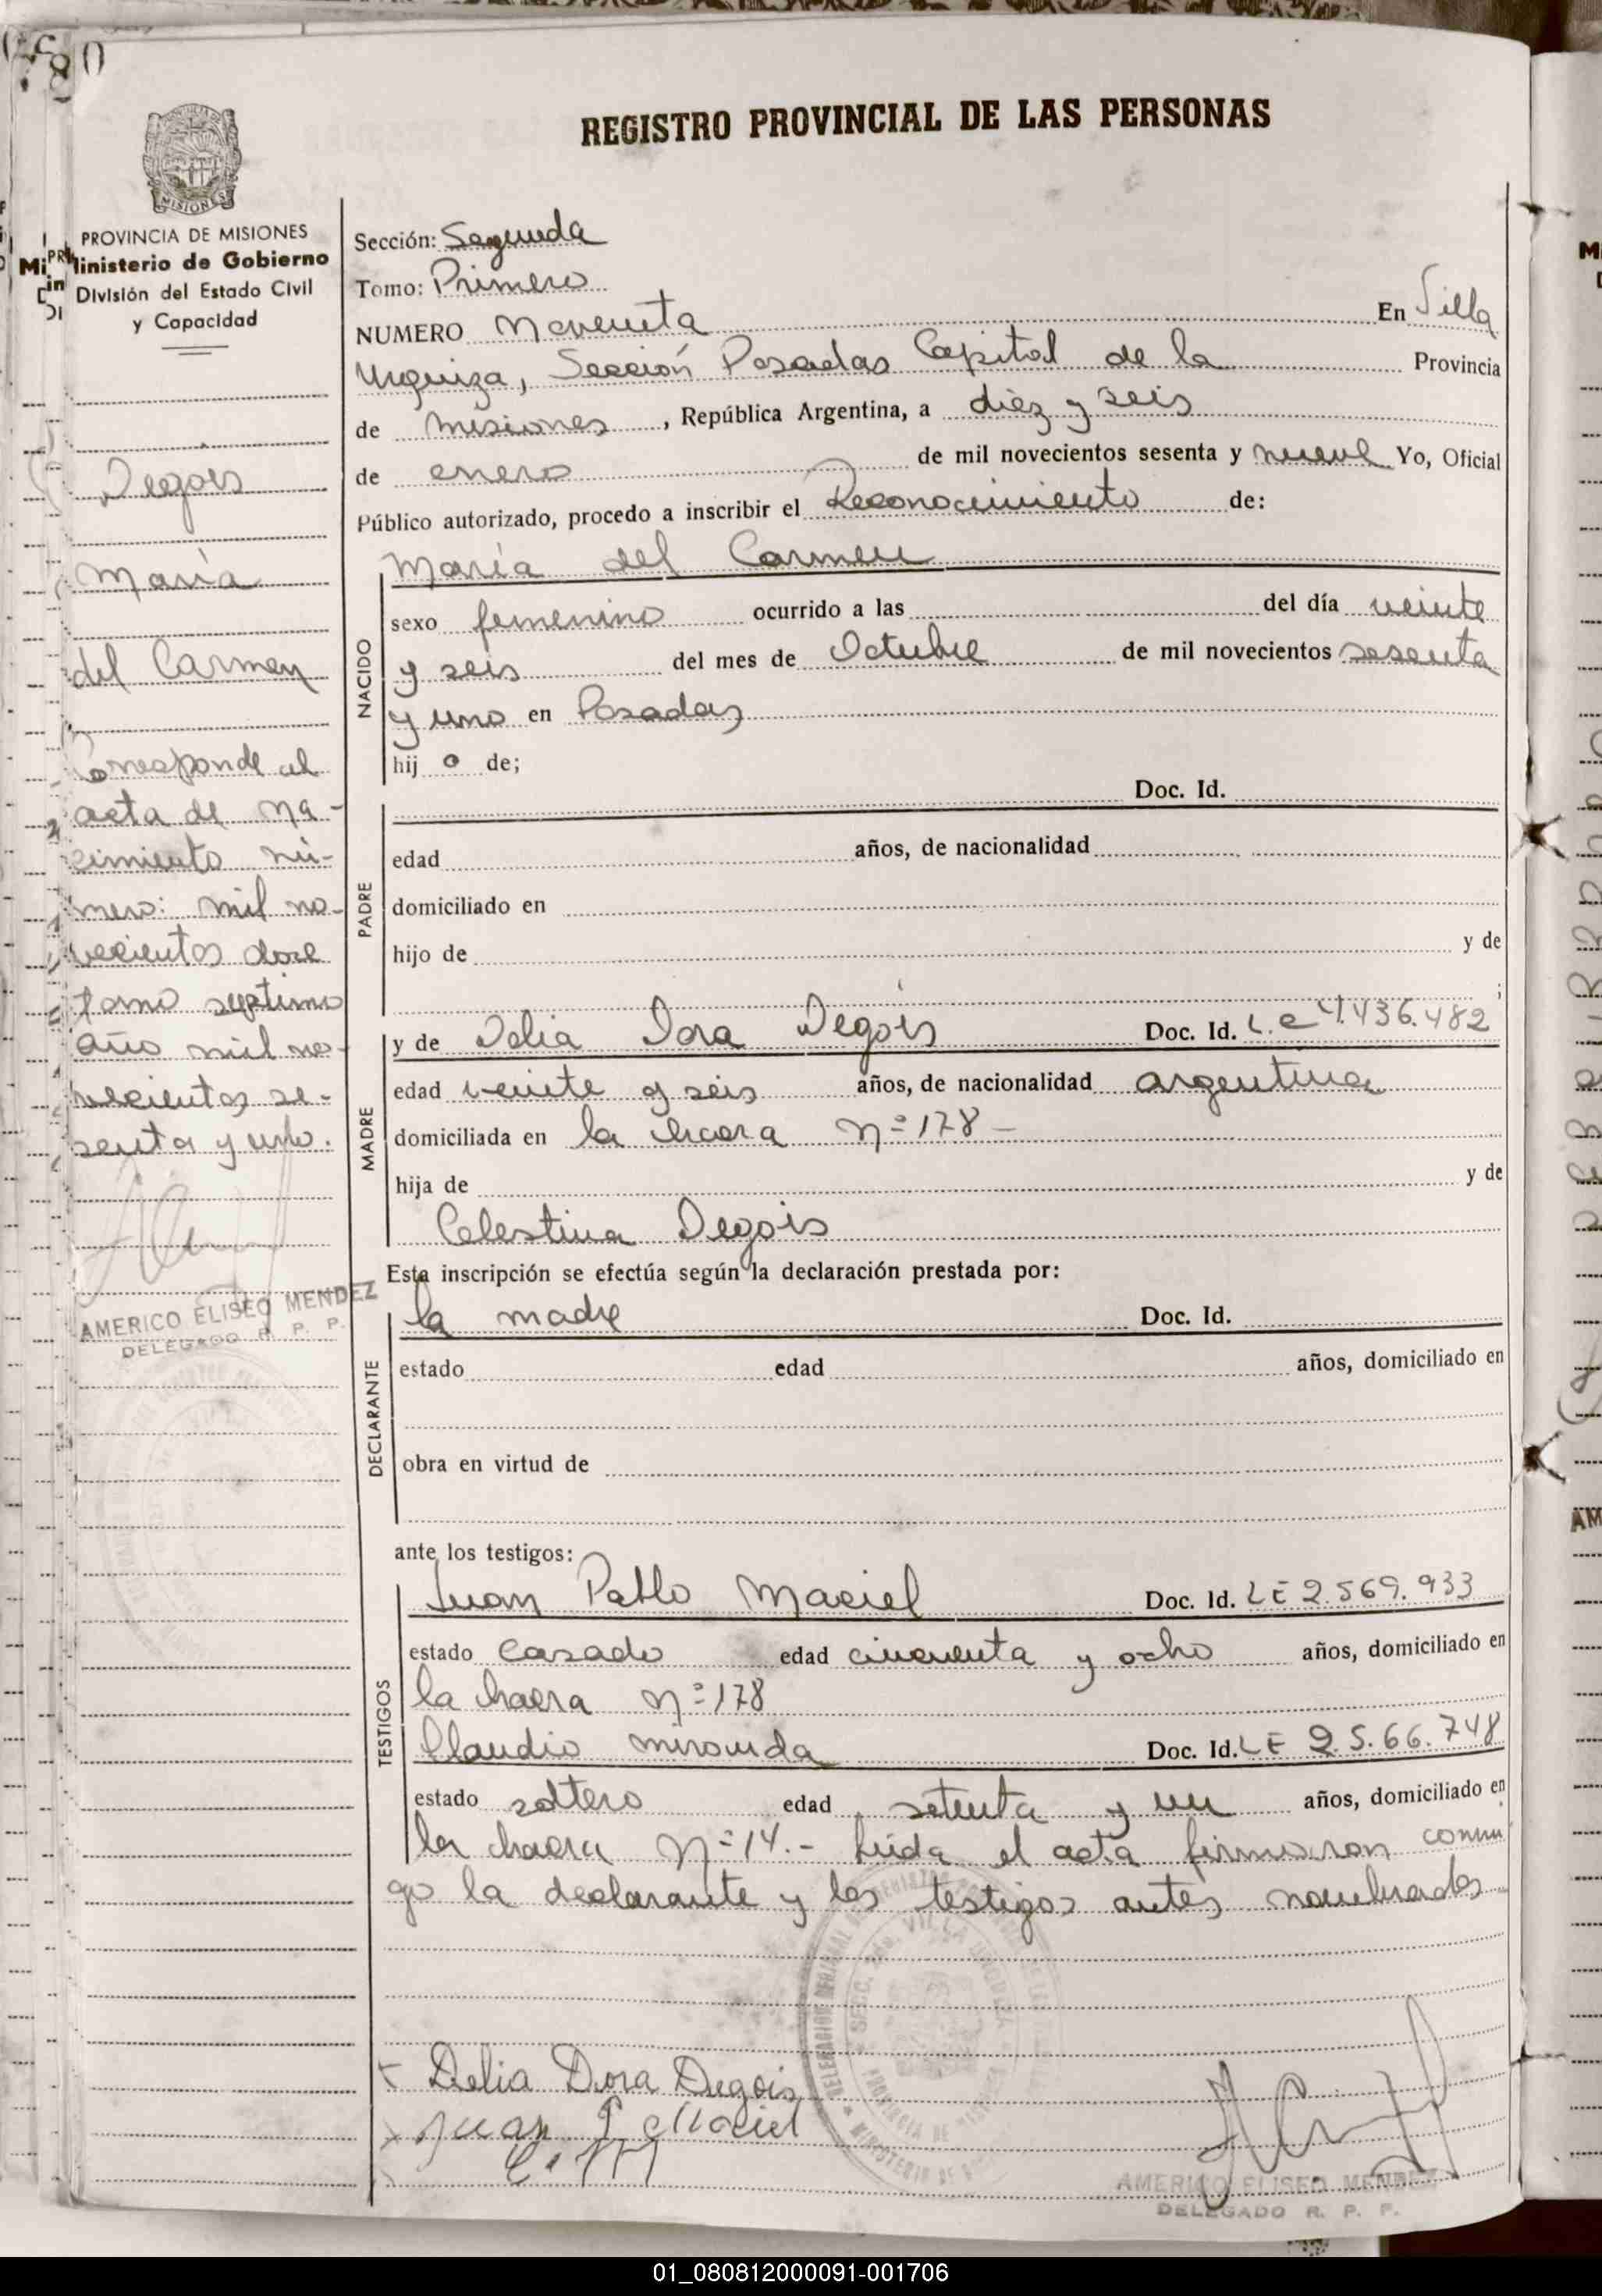 REGISTRO PROVINCIAL DE LAS PERSONAS
MISIONES
PROVINCIA DE MISIONES
Ministerio de Gobierno
División del Estado Civil
y Capacidad
Degois
María
del Carmen
Corresponde al
acta de na-
cimiento nú-
mero: mil no-
vecientos doce
tomo septimo
año mil no-
vecientos se-
senta y uno.
AMERICO ELISEO MENDEZ
DELEGADO R. P. P.
Sección: Segunda
Tomo: Primero
NUMERO Noventa En Villa
Urquiza, Sección Posadas Capital de la Provincia
de Misiones, República Argentina, a diez y seis
de enero de mil novecientos sesenta y nueve Yo, Oficial
Público autorizado, procedo a inscribir el Reconocimiento de:
María del Carmen
NACIDO
sexo femenino ocurrido a las del día veinte
y seis del mes de Octubre de mil novecientos sesenta
y uno en Posadas
hij a de;
PADRE
Doc. Id.
edad años, de nacionalidad
domiciliado en
hijo de y de
;
MADRE
y de Delia Dora Degois Doc. Id. L.C 4.436.482
edad veinte y seis años, de nacionalidad argentina
domiciliada en la chacra Nº 178 -
hija de y de
Celestina Degois
Esta inscripción se efectúa según la declaración prestada por:
DECLARANTE
la madre Doc. Id.
estado edad años, domiciliado en
obra en virtud de
ante los testigos:
TESTIGOS
Juan Pablo Maciel Doc. Id. LE 2.569.933
estado casado edad cincuenta y ocho años, domiciliado en
la chacra Nº 178
Claudio Miranda Doc. Id. LE 2 5.66.748
estado soltero edad setenta y un años, domiciliado en
la chacra Nº 14.- Leida el acta firmaron conmi
go la declarante y los testigos antes nombrados
Delia Dora Degois
Juan P Maciel
C. M
AMERICO ELISEO MENDEZ
DELEGADO R. P. P.
01_080812000091-001706